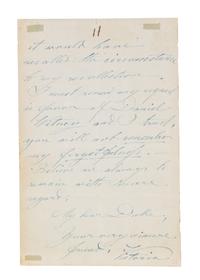 11
it would have
recalled the circumstances
to my recollection.
I must renew my request
in favor of Daniel
and I trust
you will not remember
my forgetfulness.
Believe me always to
remain with sincere
regard,
My dear Duke,
Your very sincere
friend, Victoria